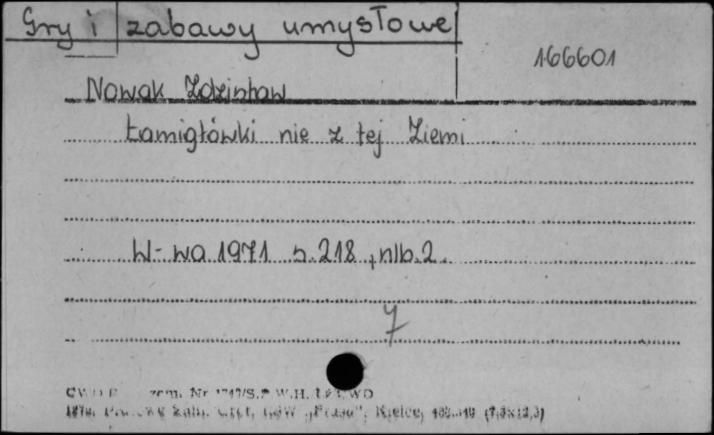 Gry i zabawy umysłowe
166601
Nowak Zdzisław
Łamigłówki nie z tej Ziemi
W-wa 1971 s. 218, nlb. 2.
7
zam. Nr W.H.
Kielce,